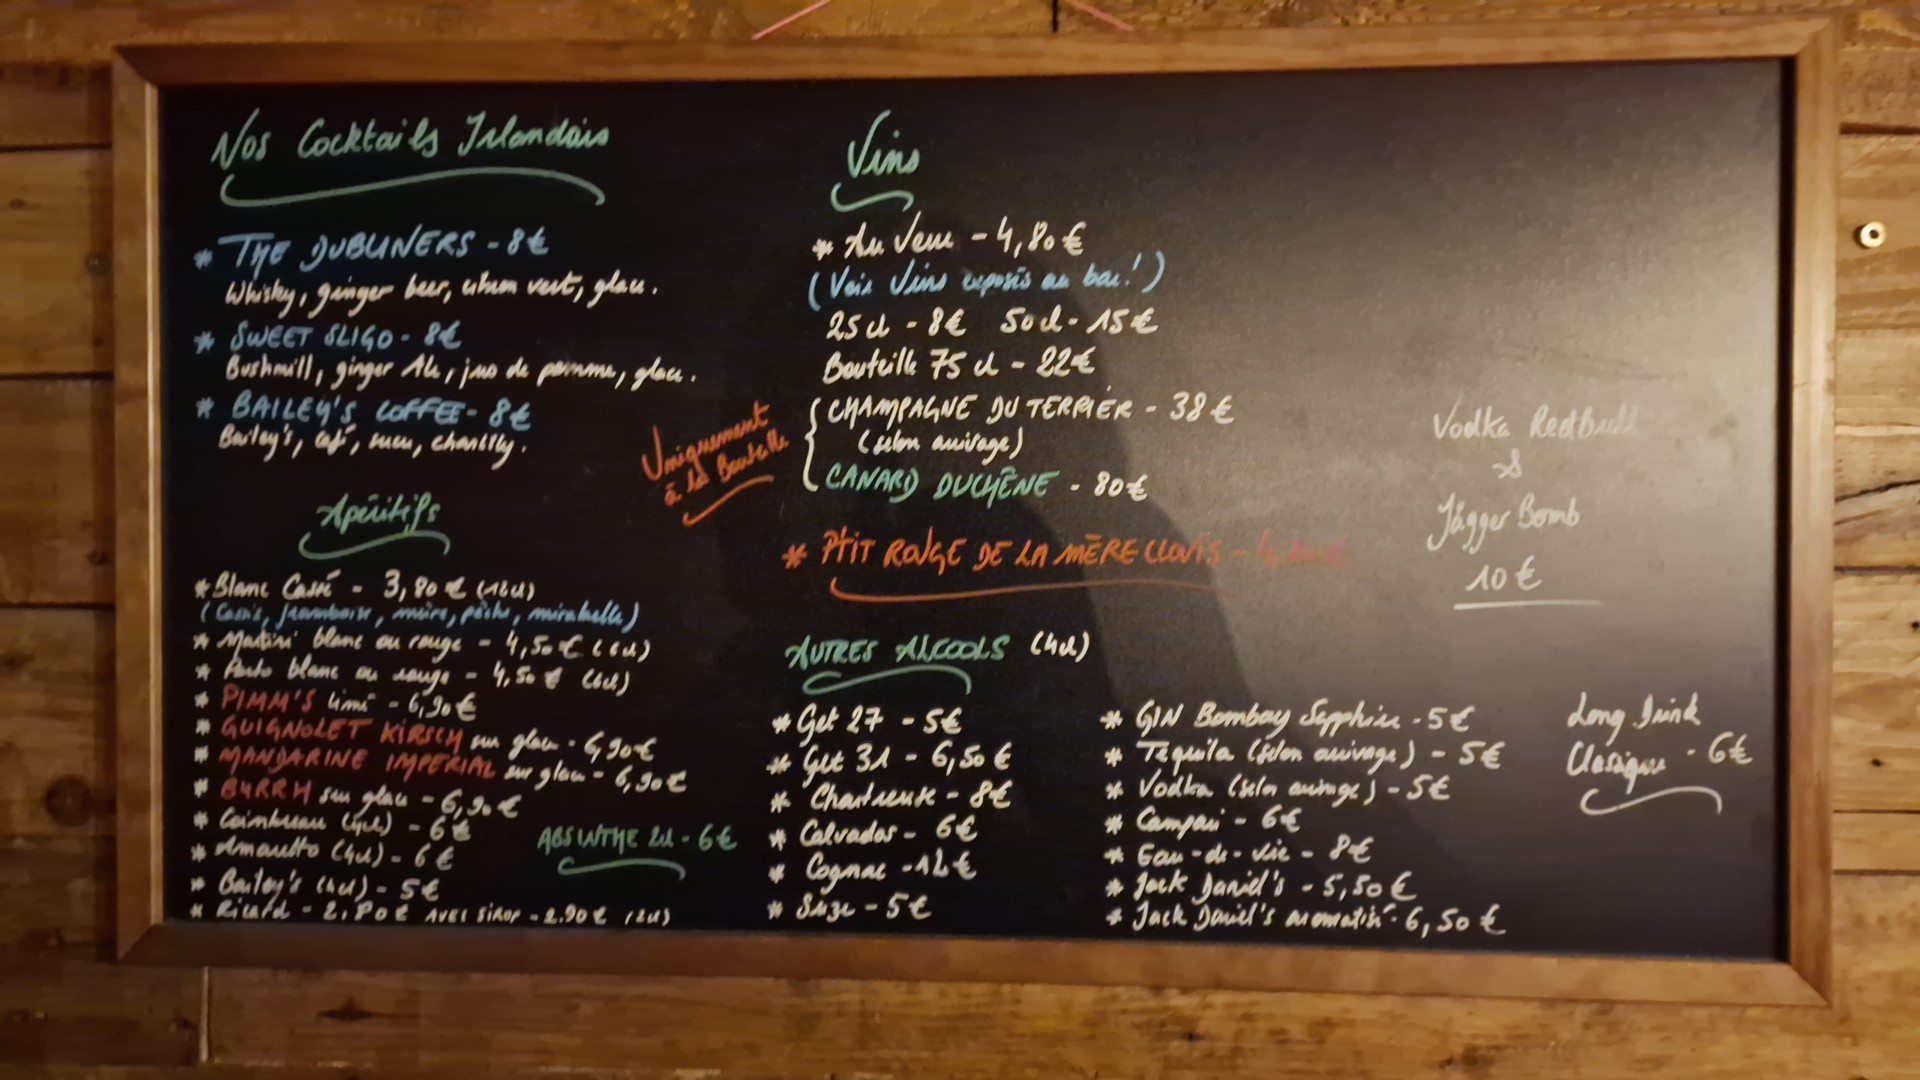 Nos Cocktails Irlandais
* THE DUBLINERS - 8€
Whisky, ginger beer, citron vert, glace.
* SWEET SLIGO - 8€
Bushmill, ginger Ale, jus de pomme, glace.
* BAILEY'S COFFEE - 8€
Bailey's, café, sucre, chantilly.
Apéritifs
* Blanc Cassé - 3,80€
(Cassis, framboise, mûre, pêche, mirabelle)
* Martini blanc ou rouge - 4,50€ (6cl)
* Porto blanc ou rouge - 4,50€ (6cl)
* PIMM'S limé - 6,90€
* GUIGNOLET KIRSCH sur glace - 6,90€
* MANDARINE IMPERIAL sur glace - 6,90€
* BYRRH sur glace - 6,90€
* Cointreau (4cl) - 6€
* Amaretto (4cl) - 6€
* Bailey's (4cl) - 5€
* Ricard - 2,80€ AVEC SIROP - 2.90€ (2cl)
ABSINTHE 2cl - 6€
Vins
* Au Verre - 4,80€
(Voir Vins exposés au bar!)
25cl - 8€ 50cl - 15€
Bouteille 75cl - 22€
Uniquement
à la Bouteille
CHAMPAGNE DU TERRIER - 38€
(selon arrivage)
CANARD DUCHÊNE - 80€
* P'TIT ROUGE DE LA MÈRE CLOVIS -
AUTRES ALCOOLS (4cl)
* Get 27 - 5€
* Get 31 - 6,50€
* Chartreuse - 8€
* Calvados - 6€
* Cognac - 12€
* Suze - 5€
* GIN Bombay Sapphire - 5€
* Tequila (selon arrivage) - 5€
* Vodka (selon arrivage) - 5€
* Campari - 6€
* Eau-de-vie - 8€
* Jack Daniel's - 5,50€
* Jack Daniel's aromatisé - 6,50€
Vodka RedBull
&
Jägger Bomb
10€
Long Drink
Classique - 6€